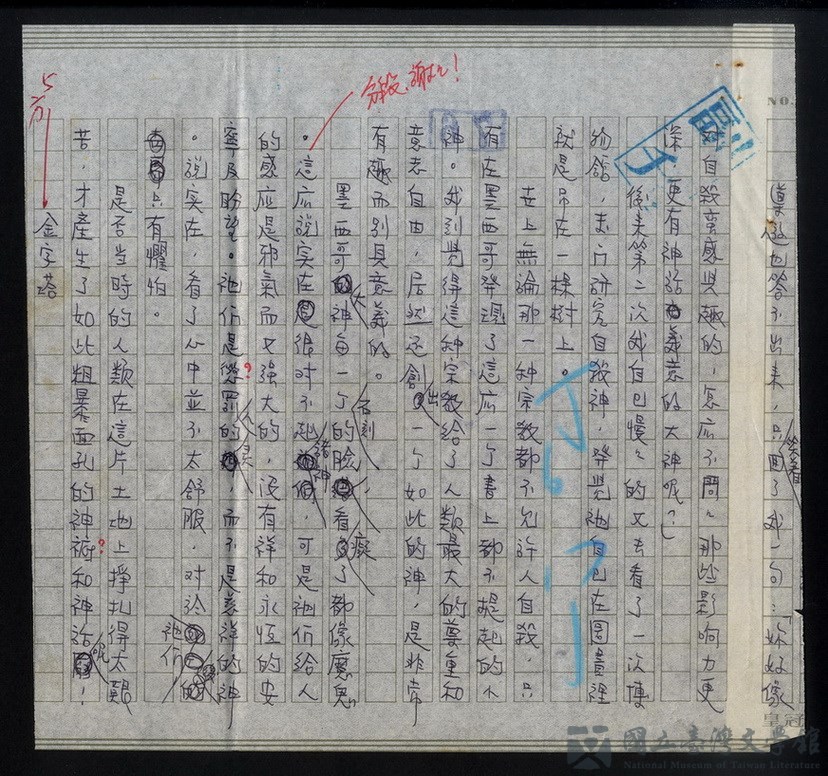 導遊也答不出來，只回了我一句：「妳好像
笑著
對自殺蠻感興趣的，怎麼不問問那些影響力更
深，更有神話意義的大神呢？」
後來第二次我自己慢慢的又去看了一次博
物館，專門研究自殺神，發覺祂自己在圖畫裡
就是吊在一棵樹上。
世上無論那一種宗教都不允許人自殺，只
有在墨西哥發現了這麼一個書上都不提起的小
神。我倒覺得這種宗教給了人類最大的尊重和
意志自由，居然還創出一個如此的神，是非常
有趣而別具意義的。
墨西哥大神每一個的臉看了都像魔鬼
石刻
。這麼說實在是很對不起諸神，可是祂們給人
的感應是邪氣而又強大的，沒有祥和永恆的安
寧及盼望。祂們是懲罰人的，而不是慈祥的神
。說實在，看了心中並不太舒服，對於祂們
只有懼怕。
是否當時的人類在這片土地上掙扎得太艱
苦，才產生了如此粗暴面孔的神祇和神話呢！
金字塔
分段，謝謝！
5分
NO.
皇冠
國立臺灣文學館
National Museum of Taiwan Literature